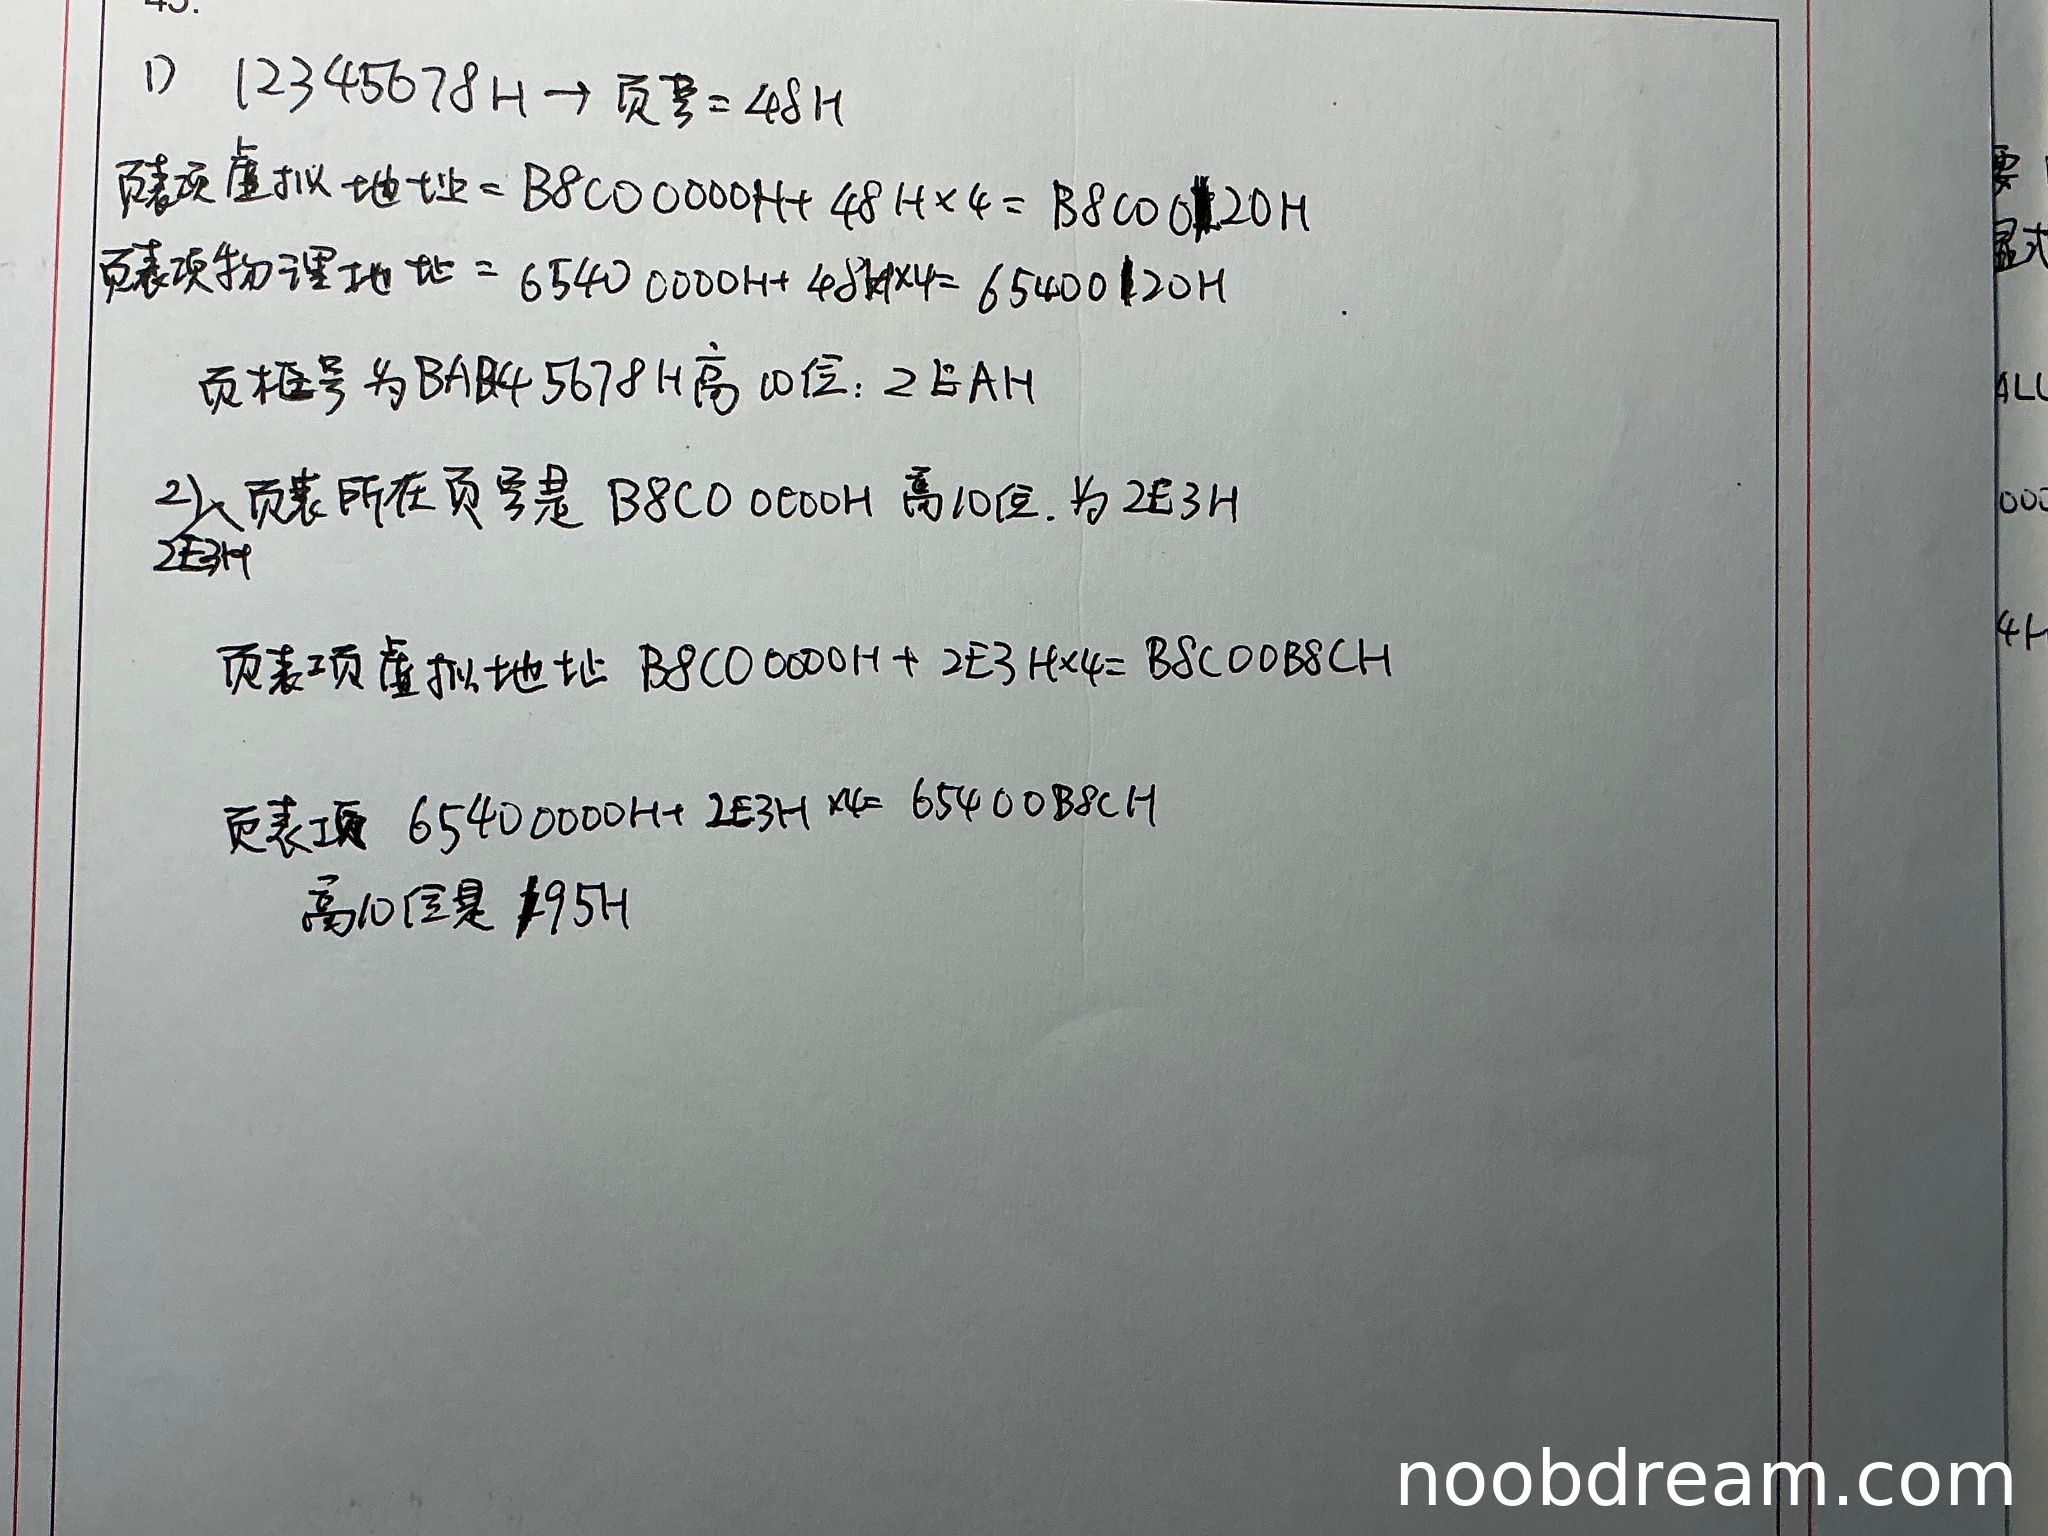 45.
1) 12345678H → 页号 = 48H
页表项虚拟地址 = B8C00000H + 48H×4 = B8C00120H
页表项物理地址 = 65400000H + 48H×4 = 65400120H
页框号为BAB45678H高10位: 2EAH
2) 页表所在页号是 B8C00000H 高10位. 为 2E3H
2E3H
页表项虚拟地址 B8C00000H + 2E3H×4 = B8C00B8CH
页表项 65400000H + 2E3H ×4 = 65400B8CH
高10位是 195H
要
显式
ALL
000
4H
noobdream.com